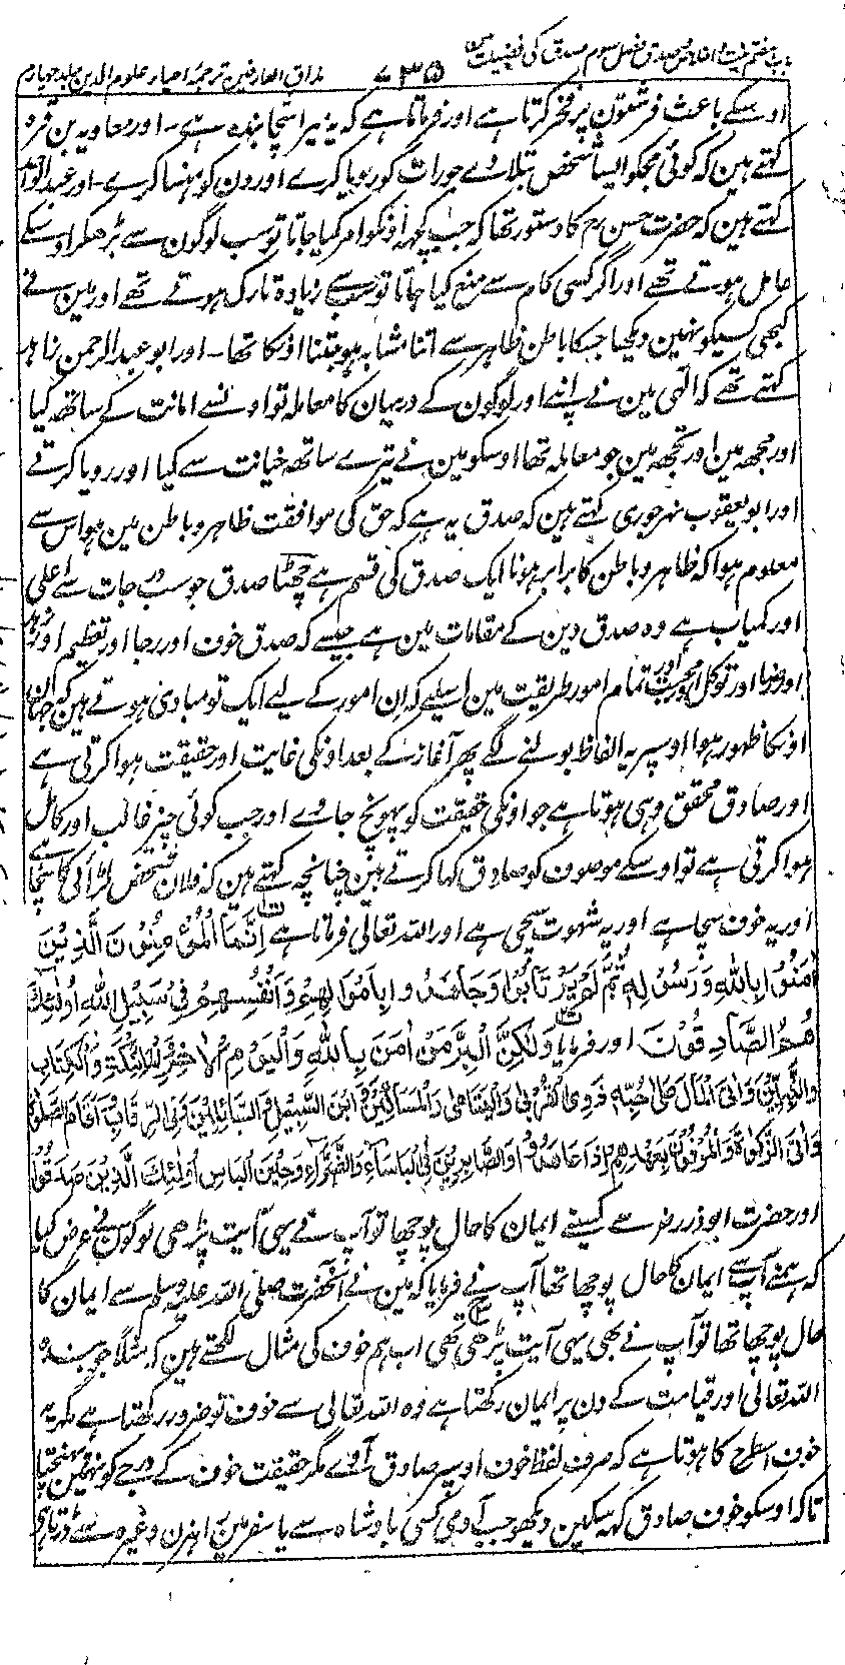 باب ہفتم نیت اخلاص صدق فصل سوم صدق کی فضیلت
۷۳۵
مذاق العارفین ترجمۂ احیاء علوم الدین جلد چہارم
اوسکے باعث فرشتون پر فخر کرتا ہے اور فرماتا ہے کہ یہ میرا سچا بندہ ہے۔ اور معاویہ بن قرہ
کہتے ہین کہ کوئی مجکو ایسا شخص بتلاوے جو رات کو رویا کرے اور دن کو ہنسا کرے۔ اور عبد الواحد
کہتے ہین کہ حضرت حسن رح کا دستور تھا کہ جب کچہہ اونکو امر کیا جاتا تو سب لوگون سے بڑھکر اوسکے
عامل ہوتے تھے اور اگر کسی کام سے منع کیا جاتا تو سب سے زیادہ تارک ہوتے تھے اور مین نے
کبھی کسیکو نہین دیکھا جسکا باطن ظاہر سے اتنا مشابہ ہو جتنا اونکا تھا۔ اور ابو عبد الرحمن زاہد
کہتے تھے کہ الٰہی مین نے اپنے اور لوگون کے درمیان کا معاملہ تو اونسے امانت کے ساتھ کیا
اور مجھہ مین اور تجھہ مین جو معاملہ تھا اوسکو مین نے تیرے ساتھ خیانت سے کیا اور رویا کرتے
اور ابو یعقوب نہرجوری کہتے ہین کہ صدق یہ ہے کہ حق کی موافقت ظاہر و باطن مین ہو اس سے
معلوم ہوا کہ ظاہر و باطن کا برابر ہونا ایک صدق کی قسم ہے چھٹا صدق جو سب درجات سے اعلی
اور کمیاب ہے وہ صدق دین کے مقامات مین ہے جیسے کہ صدق خوف اور رجا اور تعظیم اور زہد
اور رضا اور توکل اور محبت اور تمام امور طریقت مین اسلیے کہ ان امور کے لیے ایک تو مبادی ہوتے ہین کہ جہان
اونکا ظہور ہوا اوسپر یہ الفاظ بولنے لگے پھر آغاز کے بعد اونکی غایت اور حقیقت ہوا کرتی ہے
اور صادق محقق وہی ہوتا ہے جو اونکی حقیقت کو پہونچ جاوے اور جب کوئی چیز غالب اور کامل
ہوا کرتی ہے تو اوسکے موصوف کو صادق کہا کرتے ہین چنانچہ کہتے ہین کہ فلان شخص لڑائی کا سچا ہے
اور یہ خوف سچا ہے اور یہ شہوت سچی ہے اور اللہ تعالی فرماتا ہے اِنَّمَا الْمُؤْمِنُوْنَ الَّذِيْنَ
اٰمَنُوْا بِاللّٰهِ وَرَسُوْلِهٖ ثُمَّ لَمْ يَرْتَابُوْا وَجَاهَدُوْا بِاَمْوَالِهِمْ وَاَنْفُسِهِمْ فِيْ سَبِيْلِ اللّٰهِ اُولٰئِكَ
هُمُ الصَّادِقُوْنَ اور فرمایا وَلٰكِنَّ الْبِرَّ مَنْ اٰمَنَ بِاللّٰهِ وَالْيَوْمِ الْاٰخِرِ وَالْمَلَائِكَةِ وَالْكِتَابِ
وَالنَّبِيِّيْنَ وَاٰتَى الْمَالَ عَلٰى حُبِّهٖ ذَوِى الْقُرْبٰى وَالْيَتَامٰى وَالْمَسَاكِيْنَ وَابْنَ السَّبِيْلِ وَالسَّائِلِيْنَ وَفِى الرِّقَابِ وَاَقَامَ الصَّلٰوةَ
وَاٰتَى الزَّكٰوةَ وَالْمُوْفُوْنَ بِعَهْدِهِمْ اِذَا عَاهَدُوْا وَالصَّابِرِيْنَ فِى الْبَاْسَاءِ وَالضَّرَّاءِ وَحِيْنَ الْبَاْسِ اُولٰئِكَ الَّذِيْنَ صَدَقُوْا
اور حضرت ابوذر رض سے کسینے ایمان کا حال پوچھا تو آپ نے یہی آیت پڑھی لوگون نے عرض کیا
کہ ہمنے آپ سے ایمان کا حال پوچھا تھا آپ نے فرمایا کہ مین نے آنحضرت صلی اللہ علیہ وسلم سے ایمان کا
حال پوچھا تھا تو آپ نے بھی یہی آیت پڑھی تھی اب ہم خوف کی مثال لکھتے ہین کہ مثلاً جو بندہ
اللہ تعالی اور قیامت کے دن پر ایمان رکھتا ہے وہ اللہ تعالی سے خوف تو ضرور رکھتا ہے مگر یہ
خوف اسطرح کا ہوتا ہے کہ صرف لفظ خوف اوسپر صادق آوے مگر حقیقت خوف کے درجے کو نہین پہنچتا
تاکہ اوسکو خوف صادق کہہ سکین دیکھو جب آدمی کسی بادشاہ سے یا سفر مین راہزن وغیرہ سے ڈرتا ہے